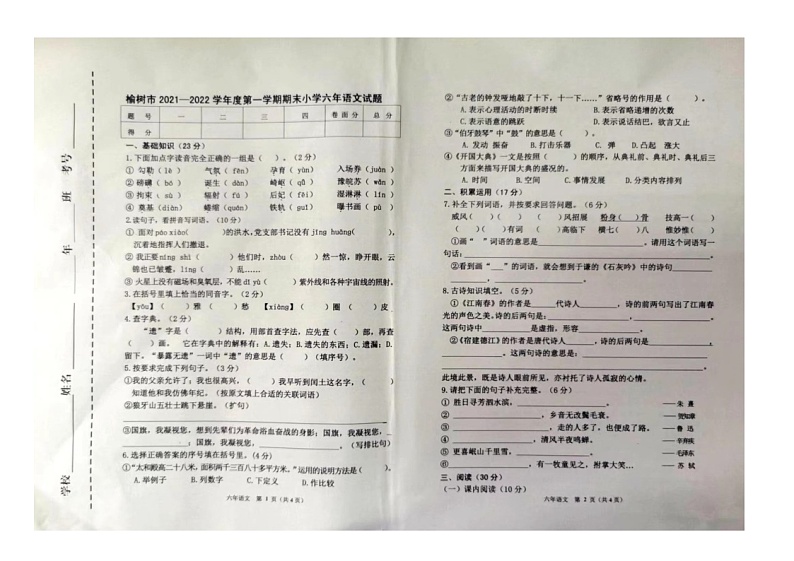 学校
姓名
年
班
考号
榆树市 2021—2022 学年度第一学期期末小学六年语文试题
题 号 一 二 三 四 卷面分 总 分
得 分
一、基础知识（23 分）
1.下面加点字读音完全正确的一组是（ ）。（2 分）
① 勾勒（lè ） 气氛（ fēn） 孕育（ yùn） 入场券（juàn ）
② 磅礴（ bó ） 诞生（ dàn） 崎岖（ qū ） 豫皖苏（ wǎn ）
③ 拘束（ sù ） 辐射（ fú ） 后妃（ fēi） 湿淋淋（ lín ）
④ 奠基（diàn） 蜷缩（quán） 铁轨（ guǐ） 曝书画（ pù ）
2.读句子，看拼音写词语。（10 分）
① 面对páo xiào( )的洪水,党支部书记没有 jīng huāng( ),
沉着地指挥人们撤退。
② 我正要níng shì （ ）他们时，zhòu（ ）然一惊，睁开眼，云
锦也已皱蹙，líng（ ）乱……
③ 火星上没有磁场和臭氧层，不能dǐ yù（ ）紫外线和各种宇宙线的照射。
3.在括号里填上恰当的同音字。（2 分）
【yōu】（ ）雅 （ ）愁 【xiàng】（ ）圈 （ ）皮
4.查字典。（2 分）
“遗”字是（ ）结构，用部首查字法，应先查（ ）部，再查
（ ）画。 它在字典中的解释有：A.遗失；B.遗失的东西；C.遗漏；D.
留下。“暴露无遗”一词中“遗”的意思是（ ）（填序号）。
5.按要求完成下列句子。（3 分）
①我的父亲允许了；我也很高兴，（ ）我早听到闰土这名字，（ ）
知道他和我仿佛年纪。（按原文填上合适的关联词语）
②狼牙山五壮士跳下悬崖。（扩句）
③国旗，我凝视您，想到先辈们为革命浴血奋战的身影；国旗，我凝视您，
；国旗，我凝视您， 。（写排比句）
6.选择正确答案的序号填在括号里。（4 分）
①“太和殿高二十八米，面积两千三百八十多平方米。”运用的说明方法是（ ）。
A.举例子 B.列数字 C.下定义 D.作比较
六年语文 第 1 页（共 4 页）
②“古老的钟发哑地敲了十下，十一下……”省略号的作用是（ ）。
A.表示心理活动的时断时续 B.表示省略递增的次数
C.表示语意的跳跃 D.表示说话结巴，欲言又止
③“伯牙鼓琴”中“鼓”的意思是（ ）。
A. 发动 振奋 B.打击乐器 C. 弹 D.凸起 涨大
④《开国大典》一文是按照（ ）的顺序，从典礼前、典礼时、典礼后三
方面来描写开国大典的盛况的。
A. 时间 B.空间 C.事情发展 D.分类内容排列
二、积累运用（17 分）
7.补全下列词语，并按要求回答问题。（6 分）
威风( )( ) ( )风招展 粉身( )骨 技高一( )
( )( )有词 ( )高临下 横七( )八 惟妙惟( )
①画“ ”词语的意思是 。请用这个词语写一
句话：
②看到画“＿＿”的词语，就会想到于谦的《石灰吟》中的诗句
。
8.古诗知识填空。（5 分）
①《江南春》的作者是 代诗人 ，诗的前两句写出了江南春
光的声色之美。诗的后两句是： ， 。
这两句诗中 是虚指，形容 。
②《宿建德江》的作者是唐代诗人 ，诗的后两句是
， 。这两句诗的意思是：
此境此景，既是诗人眼前所见，亦衬托了诗人孤寂的心情。
9.请把下面的句子补充完整。（6 分）
① 胜日寻芳泗水滨， 。 ——朱 熹
② ，乡音无改鬓毛衰。 ——贺知章
③ ，走的人多了，也便成了路。 ——鲁 迅
④ ，清风半夜鸣蝉。 ——辛弃疾
⑤ 更喜岷山千里雪， 。 ——毛泽东
⑥ ，有一牧童见之，拊掌大笑… ——苏 轼
三、阅读（30 分）
（一）课内阅读（10 分）
六年语文 第 2 页（共 4 页）